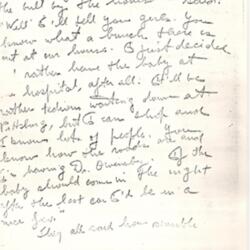 the bill by the
"Well I'll tell you girls. You
know what a bunch there is
out at our house. I just decided
I'd rather have the baby at
a hospital, after all. I'll be
rather tedious waiting down at
Pittsburg, but I can shop and
I know lots of people. You
know how the roads are and
I'm having Dr. If the
baby should come in the night
after the last car I'd be in a
nice fix."
They all said how sensible